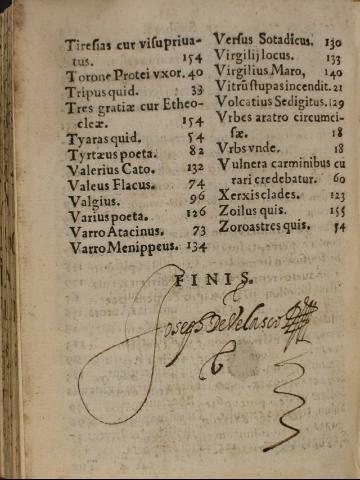 Tiresias cur visu priua-
tus. 154
Torone Protei vxor. 40
Tripus quid. 33
Tres gratiæ cur Etheo-
cleæ. 154
Tyaras quid. 54
Tyrtæus poeta. 82
Valerius Cato. 132
Valeus Flacus. 74
Valgius. 96
Varius poeta. 126
Varro Atacinus. 73
Varro Menippeus. 134
Versus Sotadicus. 130
Virgilij locus. 133
Virgilius Maro, 140
Vitrū stupas incendit. 21
Volcatius Sedigitus. 129
Vrbes aratro circumci-
sæ. 18
Vrbs vnde. 18
Vulnera carminibus cu
rari credebatur. 60
Xerxis clades. 123
Zoilus quis. 155
Zoroastres quis. 54
FINIS.
Joseph De Velasco